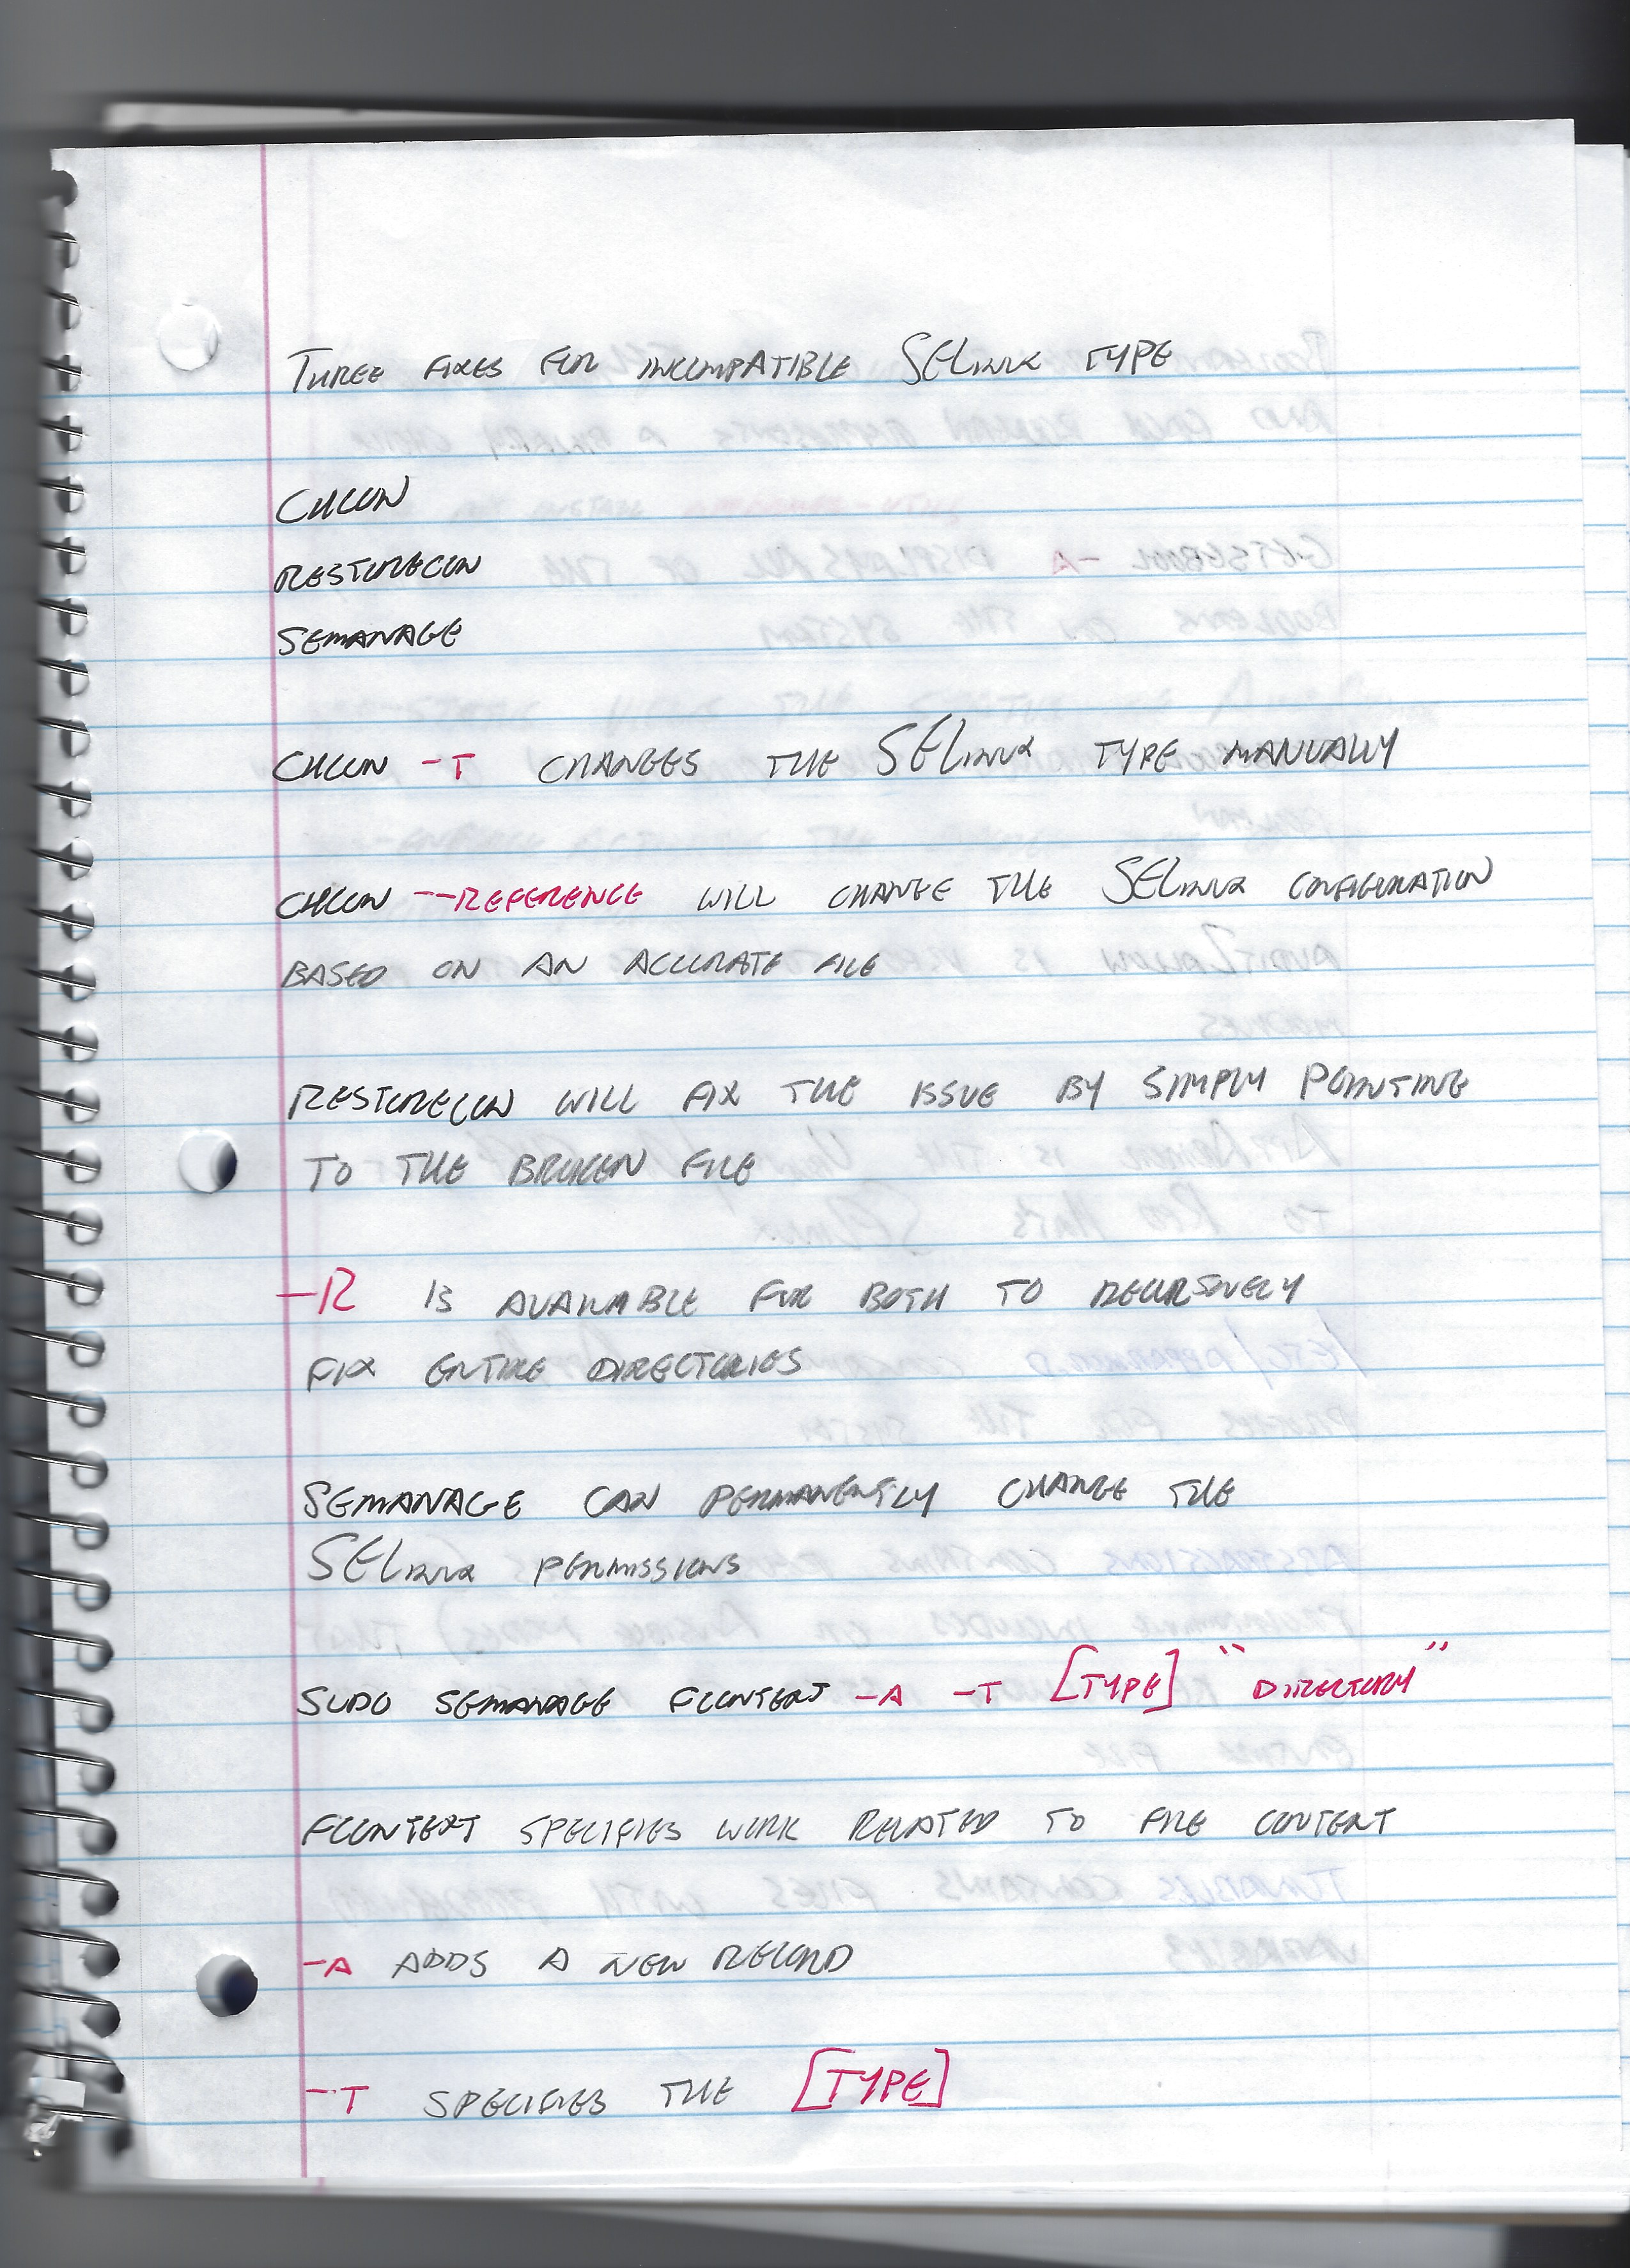 THREE FIXES FOR INCOMPATIBLE SELINUX TYPE
CHCON
RESTORECON
SEMANAGE
CHCON -T CHANGES THE SELINUX TYPE MANUALLY
CHCON --REFERENCE WILL CHANGE THE SELINUX CONFIGURATION
BASED ON AN ACCURATE FILE
RESTORECON WILL FIX THE ISSUE BY SIMPLY POINTING
TO THE BROKEN FILE
-R IS AVAILABLE FOR BOTH TO RECURSIVELY
FIX ENTIRE DIRECTORIES
SEMANAGE CAN PERMANENTLY CHANGE THE
SELINUX PERMISSIONS
SUDO SEMANAGE FCONTEXT -A -T [TYPE] "DIRECTORY"
FCONTEXT SPECIFIES WORK RELATED TO FILE CONTENT
-A ADDS A NEW RECORD
-T SPECIFIES THE [TYPE]